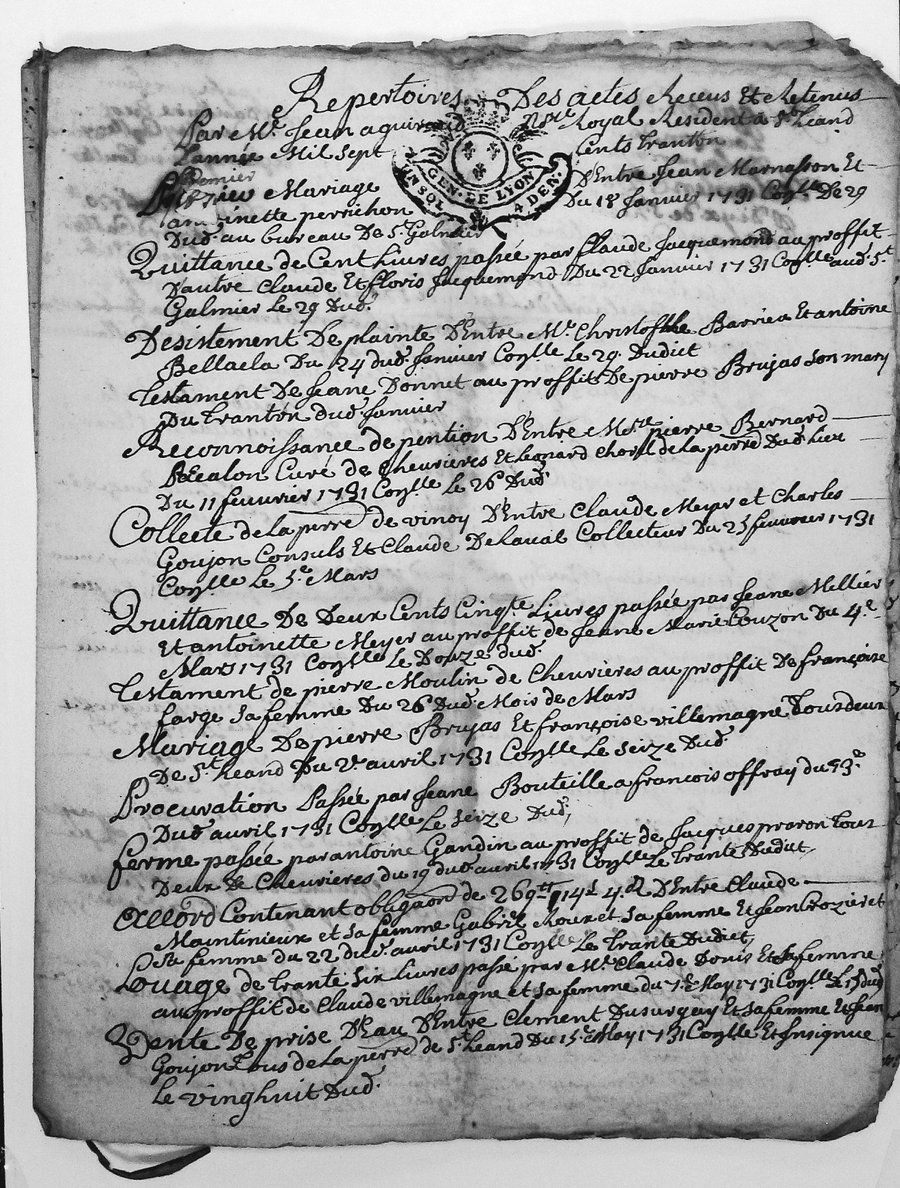 Repertoires Des actes Receus Et Retenus
Par Me. Jean aguiraud Nore. Royal Resident a St. heand
L'année Mil Sept Cents trantun
GEN. DE LYON
UN SOL 4 DEN.
Premier
Mariage D'Entre Jean Marnasson Et
antoinette perrichon Du 18 Janvier 1731 Coylle. De 29
Dud. au bureau De St. Galmier
Quittance de Cent Livres passée par Claude Jacquemond au proffit
D'autre Claude Et floris Jacquemond Du 22 Janvier 1731 Coylle aud. St.
Galmier Le 29 Dud.
Desistement De plainte D'Entre Me. Christofhle Barrieu Et antoine
Du 24 dud. Janvier Coylle Le 29. Dudict
Testament De Jeane Donnet au proffit De pierre Brujas Son mary
Du trantun dud. Janvier
Reconnoissance de pention D'Entre Mere. pierre Bernard
Curé de Cheurieres Et Leonard de la pierre Dud. Lieu
Du 11 feuvrier 1731 Coylle Le 26 Dud.
Collecte de la perre de vinoy D'Entre Claude Meyer et Charles
Goujon Consuls Et Claude De Laval Collecteur Du 25 feuvrier 1731
Coylle Le 5e. Mars
Quittance De Deux Cents Cinqte. Livres passée par Jeane Mellier
Et antoinette Meyer au proffit de Jeane Marie Couzon Du 4e.
Mars 1731 Coylle Le Douze dud.
Testament de pierre Moulin de Cheurières au proffit De françoise
farge Sa femme Du 26 Dud. Mois de Mars
Mariage De pierre Brujas Et françoise villemagne tousdeux
De St. heand Du 2e. avril 1731 Coylle Le Seize Dud.
Procuration Passée par Jeane Bouteille a francois offray du
Dud. avril 1731 Coylle Le Seize Dud.
ferme passée par antoine Gandin au proffit de Jacques praron tous
Deux de Cheurieres du 19 dud. avril 1731 Coylle Le trante Dudict
Accord Contenant obligaon. de 269lt 14s. 4d. D'Entre Claude
Maintinieux et Sa femme Gabriel Roux et Sa femme Et Jean Crozier et
Sa femme du 22 dud. avril 1731 Coylle Le trante Dudict,
Louage de trante Six Livres passé par Me. Claude Donis Et Sa femme
au proffit de Claude villemagne et Sa femme du 7e. May 1731 Coylle Le 15 dud.
Vente De prise D'Eau D'Entre Clement Dusurgey Et Sa femme Et Jean
Goujon tous de la perre de St. heand Du 15e. May 1731 Coylle Et Insignue
Le vinghuit Dud.